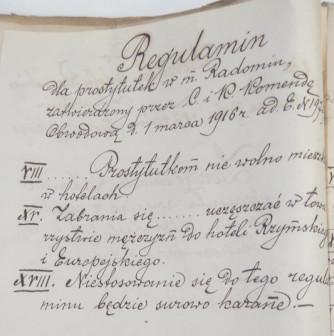 Regulamin
dla prostytutek w m. Radomiu,
zatwierdzony przez C. i K. Komendę
Obwodową d. 1 marca 1916 r. ad. E. №
VIII ...... Prostytutkom nie wolno miesz
w hotelach.
XV. Zabrania się ....... uczęszczać w towa
rzystwie mężczyzn do hoteli Rzymskieg
i Europejskiego.
XVIII. Niestosowanie się do tego regula
minu będzie surowo karane. —